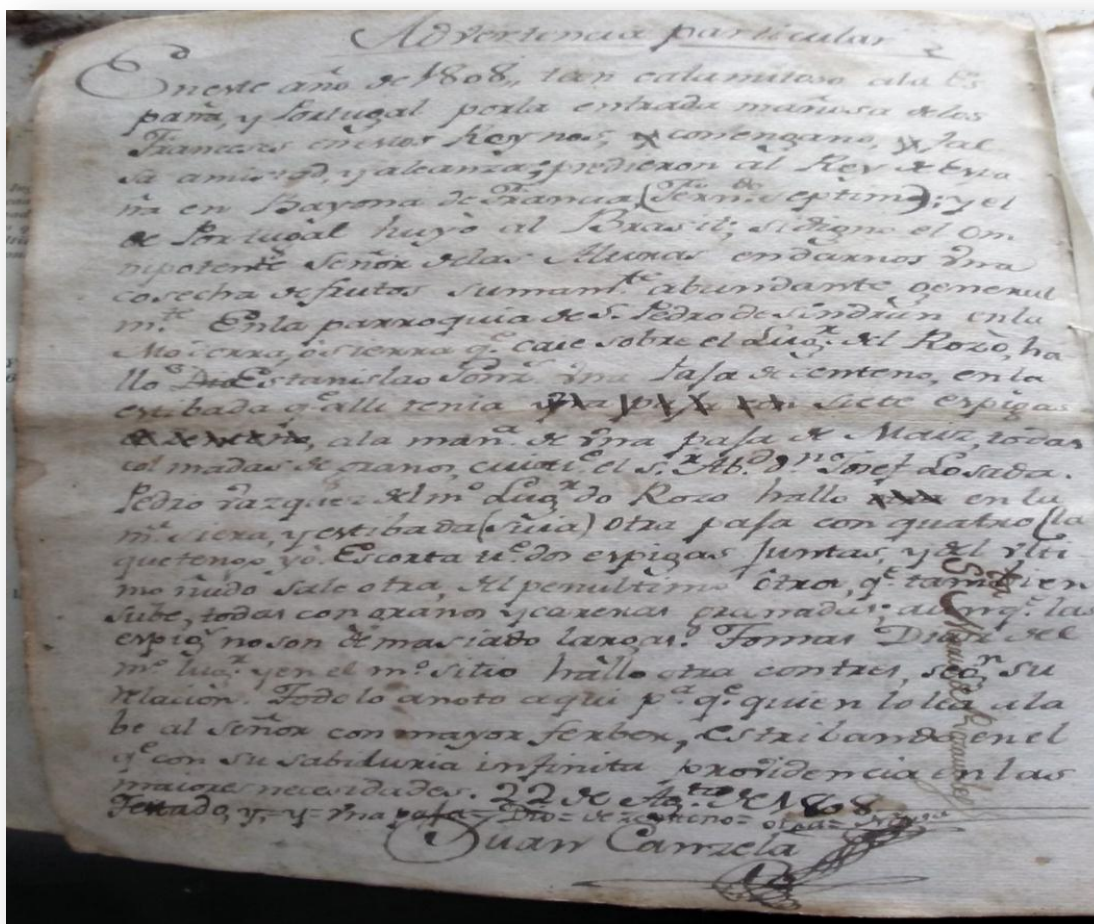 Advertencia particular
En este año de 1808,, tan calamitoso ala Es
paña, y Portugal porla entrada mañosa delos
Franceses en estos Reynos, con engano, fal
sa amistad, y aleanza; predieron al Rey de Espa
ña en Bayona de Francia (Fern.do septimo); y el
de Portugal huyò al Brasil; sedigno el Om
nipotente Señor delas Alturas endarnos vna
cosecha de frutos sumam.te abundante general
m.te Enla parroquia de S. Pedro de Sindrán enla
Moierra, ò sierra q.e caie sobre el Lug.r del Rozo, ha
llo Estanislao vna Pasa de centeno, en la
estibada q.e alli tenia siete espigas
ala man.a de vna pasa de Maiz, todas
colmadas de granos, el S.r Ab.d D.n Josef Losada.
Pedro Vazquez del m.o Lug.r do Rozo hallo en la
m.a siera, y estibada (suia) otra pasa con quatro (la
quetengo yò. Escorta dos espigas juntas, y del vlti
mo ñudo sale otra, del penultimo otro, q.e tambien
sube, todas con granos y carenas granadas; aunq.e las
espig.s no son demasiado largas. Tomas Diaz del
m.o lug.r y en el m.o sitio hallo otra contres, seg.n su
relacion. Todo lo anoto aqui p.a q.e quien lo lea ala
be al Señor con mayor ferbor, estribando en el
q.e con su sabiduria infinita providencia en las
maiores necesidades. 22 de Ag.to de 1808
Testado, y, = y = vna pasa = = de centeno =
Juan Canzela